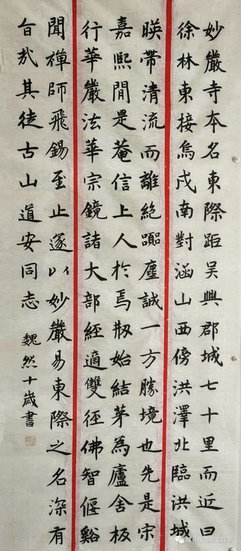 妙嚴寺本名東際距吳興郡城七十里而近曰
徐林東接烏戍南對涵山西傍洪澤北臨洪城
暎帶清流而離絕嚻塵誠一方勝境也先是宋
嘉熙間是菴信上人於焉刱始結茅為廬舍板
行華嚴法華宗鏡諸大部經適雙徑佛智偃谿
聞禪師飛錫至止遂以妙嚴易東際之名深有
旨哉其徒古山道安同志
魏然十歲書